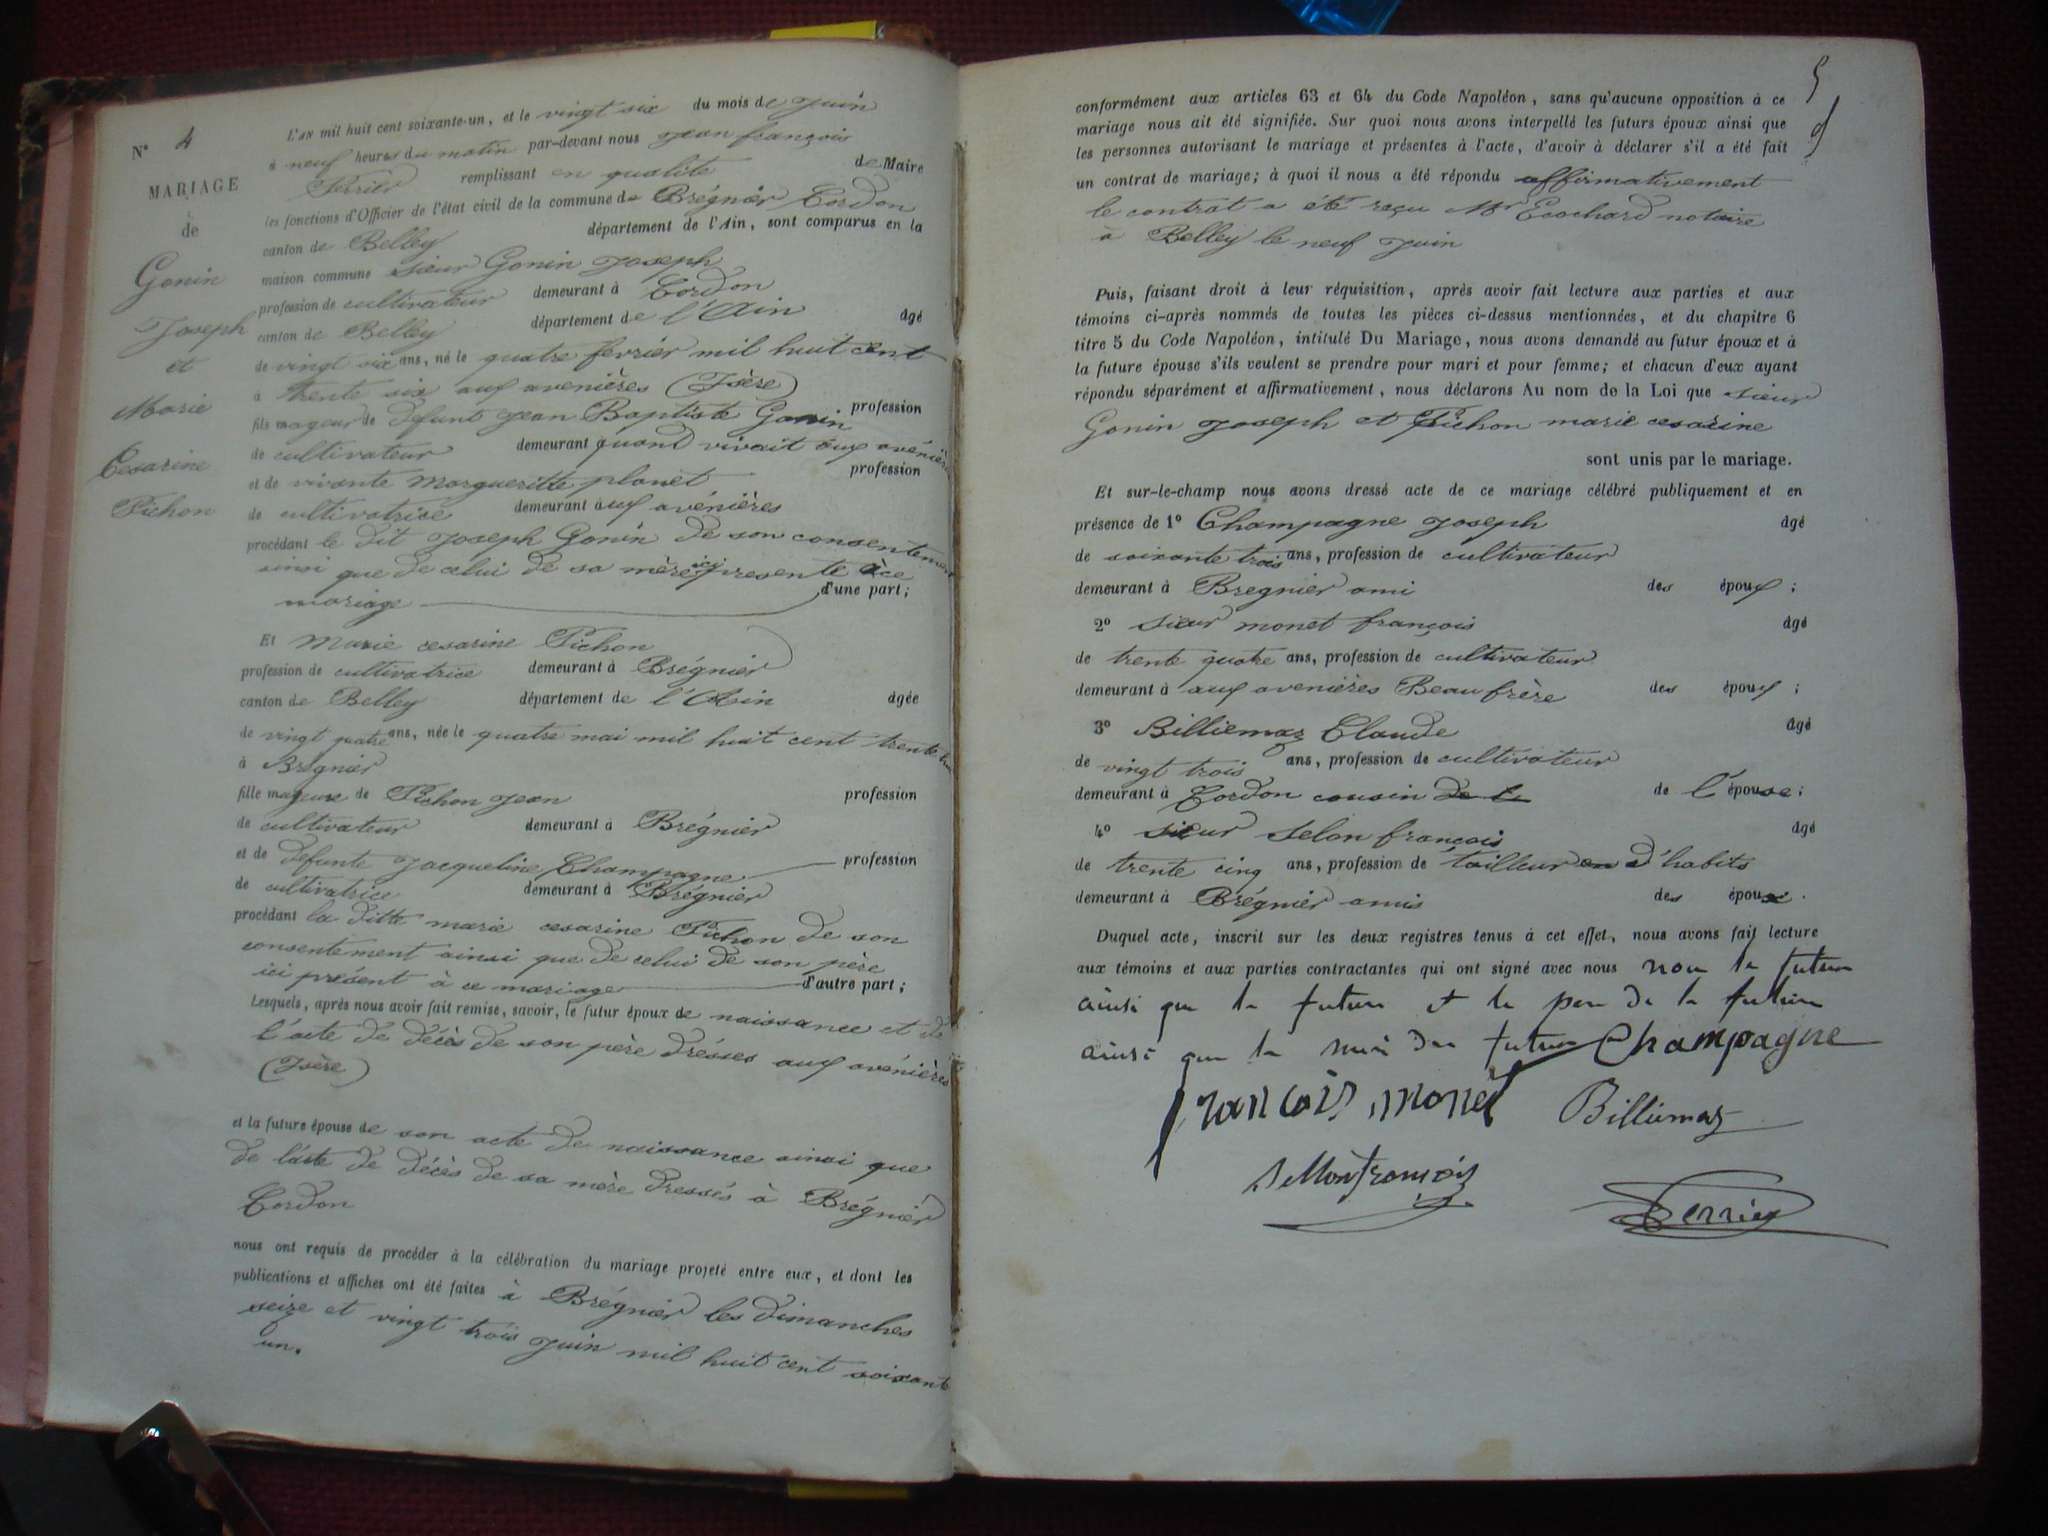 N° 4
MARIAGE
de
Gonin
Joseph
et
Marie
Cesarine
Pichon
L'AN mil huit cent soixante-un, et le vingt six du mois de juin
à neuf heures du matin par-devant nous jean françois
remplissant en qualité de Maire
les fonctions d'Officier de l'état civil de la commune de Brégnier Cordon
canton de Belley département de l'Ain, sont comparus en la
maison commune sieur Gonin joseph
profession de cultivateur demeurant à Cordon
canton de Belley département de l'Ain âgé
de vingt ans, né le quatre fevrier mil huit cent
à trente six aux avenières (Isère)
fils majeur de defunt jean Baptiste Gonin profession
de cultivateur demeurant quand vivait aux avénières
et de vivante Margueritte planet profession
de cultivatrice demeurant à aux avénières
procédant le dit joseph Gonin de son consentement
ainsi que de celui de sa mère ici presente à ce
mariage d'une part;
Et Marie cesarine Pichon
profession de cultivatrice demeurant à Brégnier
canton de Belley département de l'Ain âgée
de vingt quatre ans, née le quatre mai mil huit cent trente
à Brégnier
fille majeure de Pichon jean profession
de cultivateur demeurant à Brégnier
et de defunte jacqueline Champagne profession
de cultivatrice demeurant à Brégnier
procédant la ditte marie cesarine Pichon de son
consentement ainsi que de celui de son père
ici présent à ce mariage d'autre part;
Lesquels, après nous avoir fait remise, savoir, le futur époux de naissance et de
l'acte de décès de son père drésses aux avénières
(Isère)
et la future épouse de son acte de naissance ainsi que
de l'acte de décès de sa mère dressés à Brégnier
Cordon
nous ont requis de procéder à la célébration du mariage projeté entre eux, et dont les
publications et affiches ont été faites à Brégnier les dimanches
seize et vingt trois juin mil huit cent soixante
un.
5
conformément aux articles 63 et 64 du Code Napoléon, sans qu'aucune opposition à ce
mariage nous ait été signifiée. Sur quoi nous avons interpellé les futurs époux ainsi que
les personnes autorisant le mariage et présentes à l'acte, d'avoir à déclarer s'il a été fait
un contrat de mariage; à quoi il nous a été répondu affirmativement
le contrat a été reçu Mr Ecochard notaire
à Belley le neuf juin
Puis, faisant droit à leur réquisition, après avoir fait lecture aux parties et aux
témoins ci-après nommés de toutes les pièces ci-dessus mentionnées, et du chapitre 6
titre 5 du Code Napoléon, intitulé Du Mariage, nous avons demandé au futur époux et à
la future épouse s'ils veulent se prendre pour mari et pour femme; et chacun d'eux ayant
répondu séparément et affirmativement, nous déclarons Au nom de la Loi que sieur
Gonin joseph et Pichon marie cesarine
sont unis par le mariage.
Et sur-le-champ nous avons dressé acte de ce mariage célébré publiquement et en
présence de 1° Champagne joseph âgé
de soixante trois ans, profession de cultivateur
demeurant à Bregnier ami des époux;
2° sieur monet françois âgé
de trente quatre ans, profession de cultivateur
demeurant à aux avenières Beau frère des époux;
3° Billiemaz Claude âgé
de vingt trois ans, profession de cultivateur
demeurant à Cordon cousin de l'épouse;
4° sieur Selon françois âgé
de trente cinq ans, profession de tailleur d'habits
demeurant à Brégnier amis des époux.
Duquel acte, inscrit sur les deux registres tenus à cet effet, nous avons fait lecture
aux témoins et aux parties contractantes qui ont signé avec nous non le futur
ainsi que la future et le père de la future
ainsi que la mère du futur Champagne
francois monet Billiemaz
Perrier